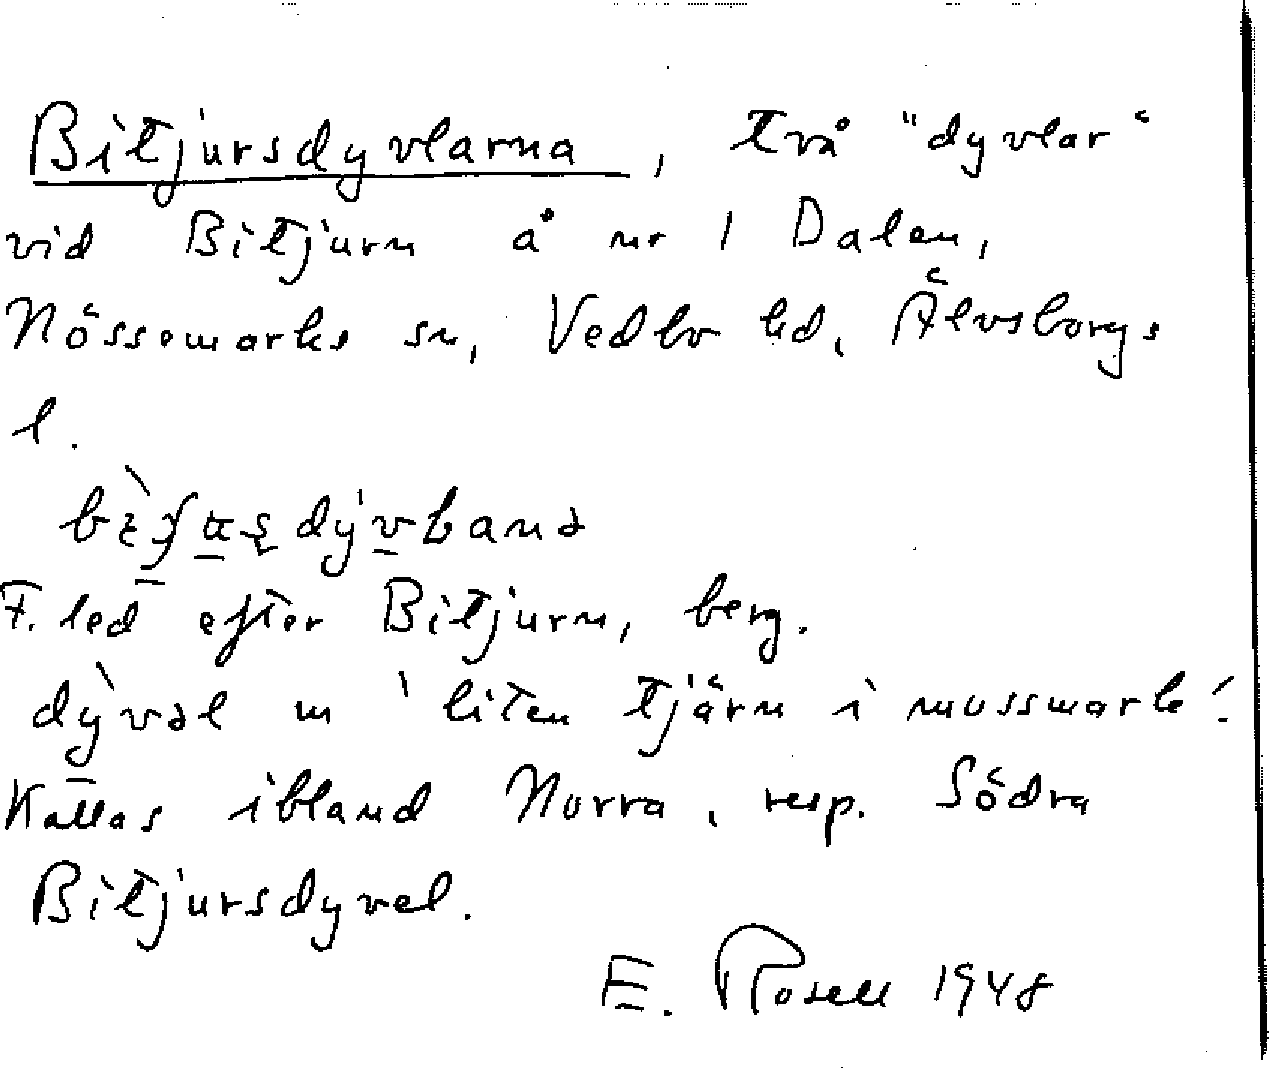 Bitjursdyvlarna, två "dyvlar"
vid Bitjurn å nr 1 Dalen,
Nössemarks sn, Vedbo hd, Älvsborgs
l.
F. led efter Bitjurn, berg.
dỳvəl m 'liten tjärn i mossmark'.
Kallas ibland Norra, resp. Södra
Bitjursdyvel.
E. Rosell 1948